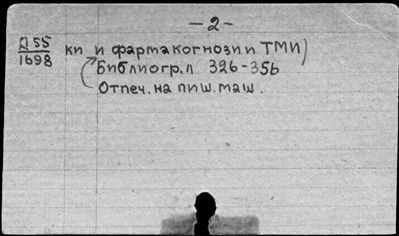 -2-
Д 55 ки и фармакогнозии ТМИ)
1698 Библиогр.л 326-356
Отпеч. на пиш. маш.